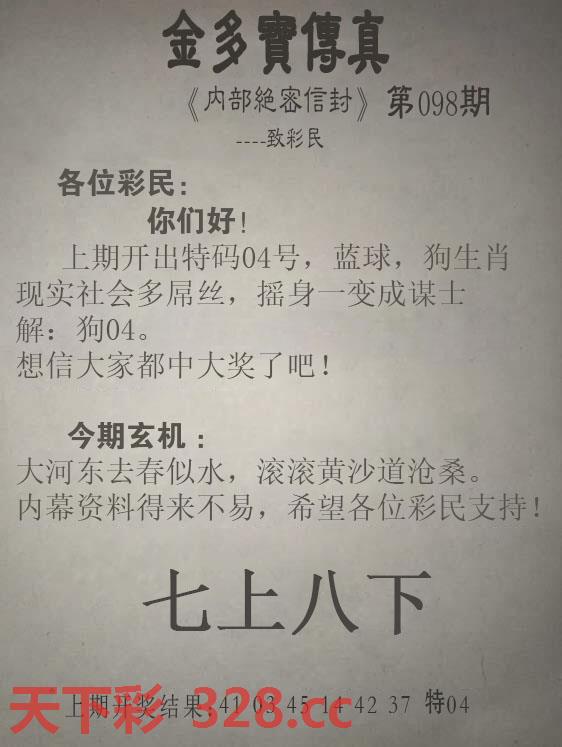 金多寶傳真
《内部絶密信封》第098期
----致彩民
各位彩民：
你们好！
上期开出特码04号，蓝球，狗生肖
现实社会多屌丝，摇身一变成谋士
解：狗04。
想信大家都中大奖了吧！
今期玄机：
大河东去春似水，滚滚黄沙道沧桑。
内幕资料得来不易，希望各位彩民支持！
七上八下
上期开奖结果：41 03 45 14 42 37 特04
天下彩 328.cc